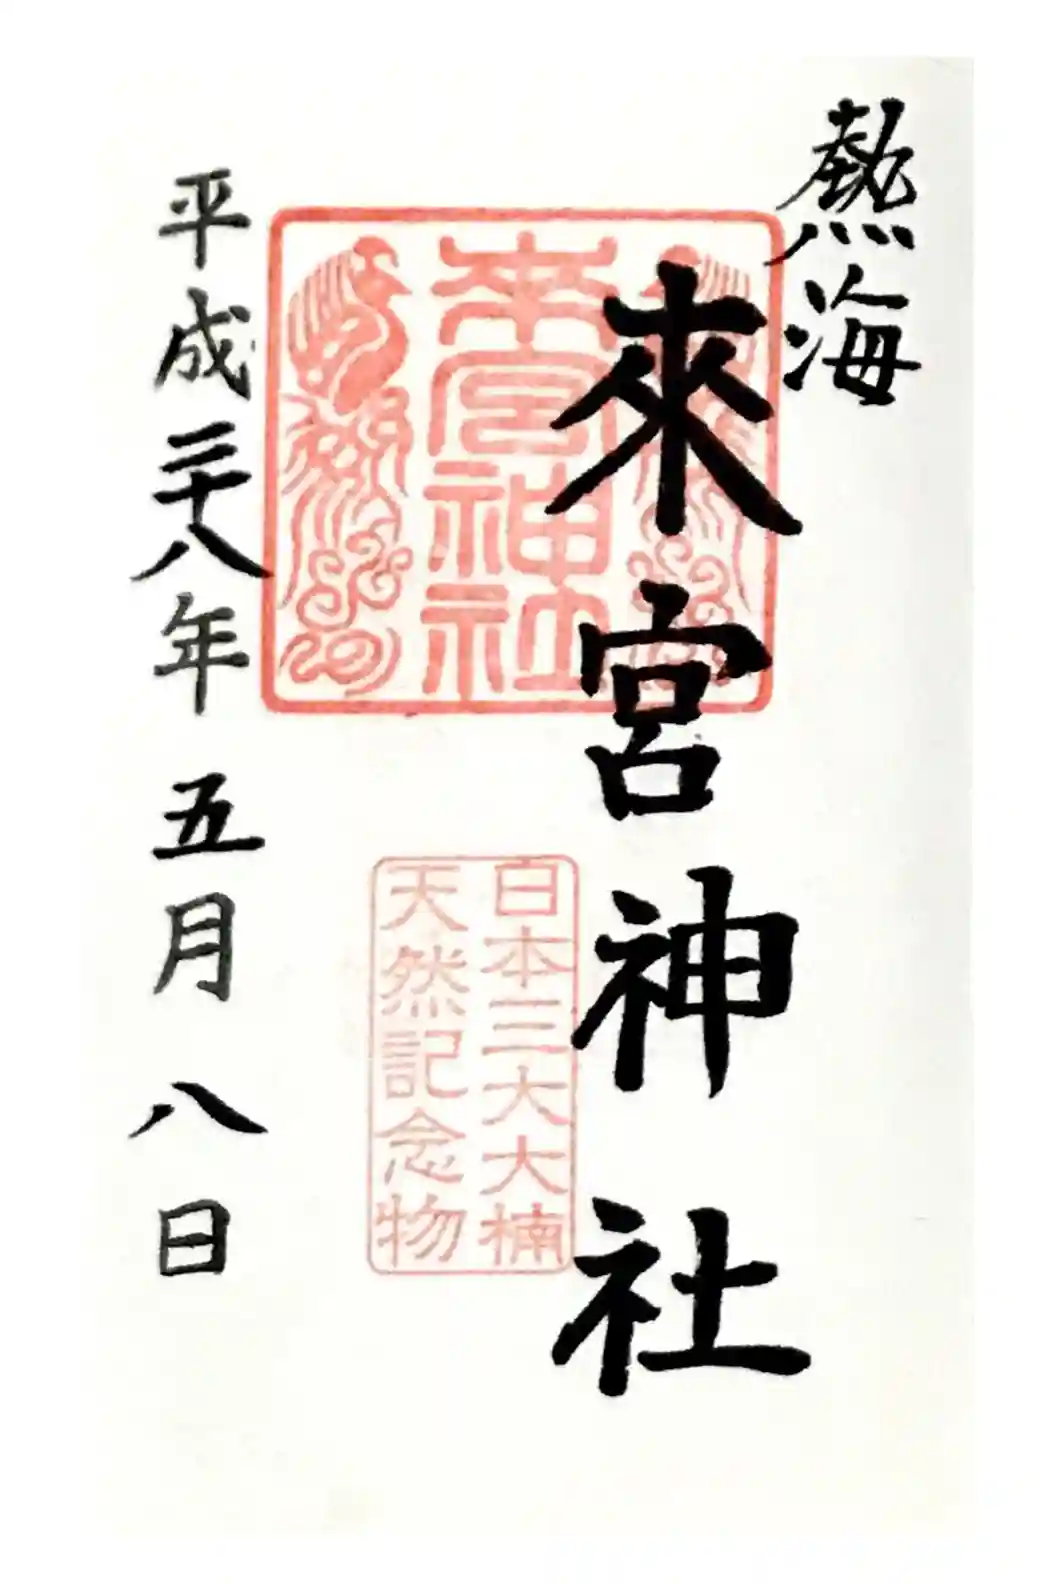 熱海
來宮神社
來宮神社
日本三大大楠
天然記念物
平成二十八年五月八日